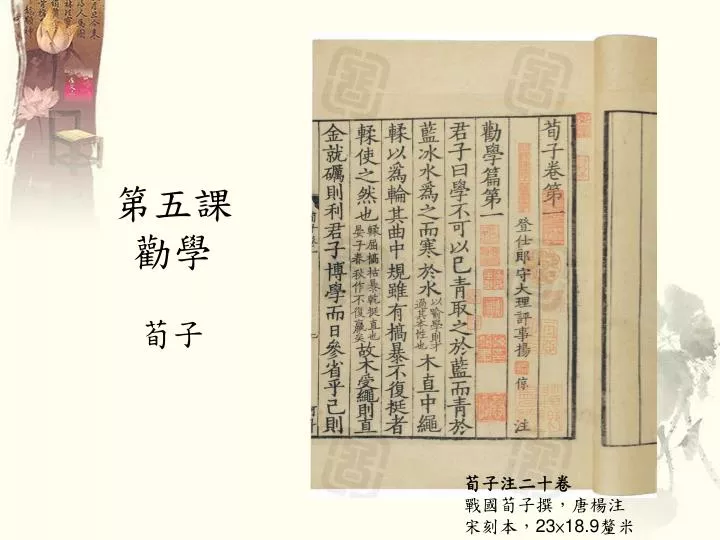 第五課
勸學
荀子
荀子卷第一
登仕郎守大理評事楊倞注
勸學篇第一
君子曰學不可以已青取之於藍而青於
藍冰水爲之而寒於水以喻學則才過其本性也木直中繩
輮以爲輪其曲中規雖有槁暴不復挺者
輮使之然也輮屈槁枯暴乾挺直也晏子春秋作不復贏矣故木受繩則直
金就礪則利君子博學而日參省乎己則
荀子注二十卷
戰國荀子撰，唐楊注
宋刻本，23×18.9釐米